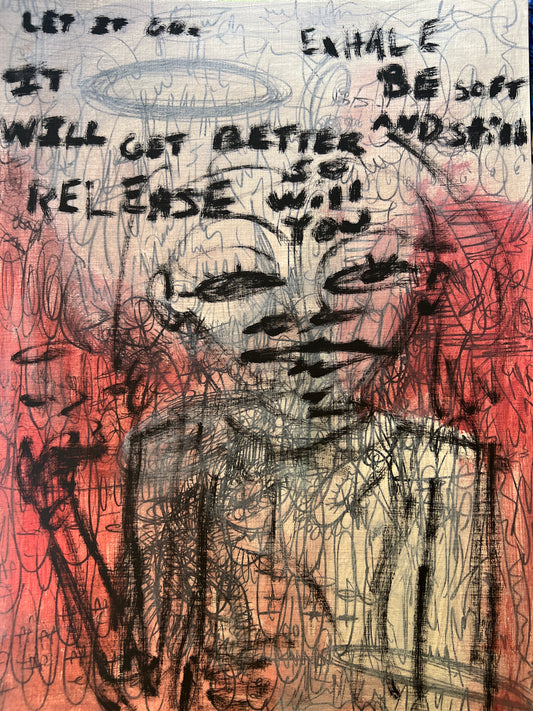 LET IT GO.
EXHALE
IT
BE SOFT
WILL GET BETTER
AND Still
RELEASE
SO
Will
YOU